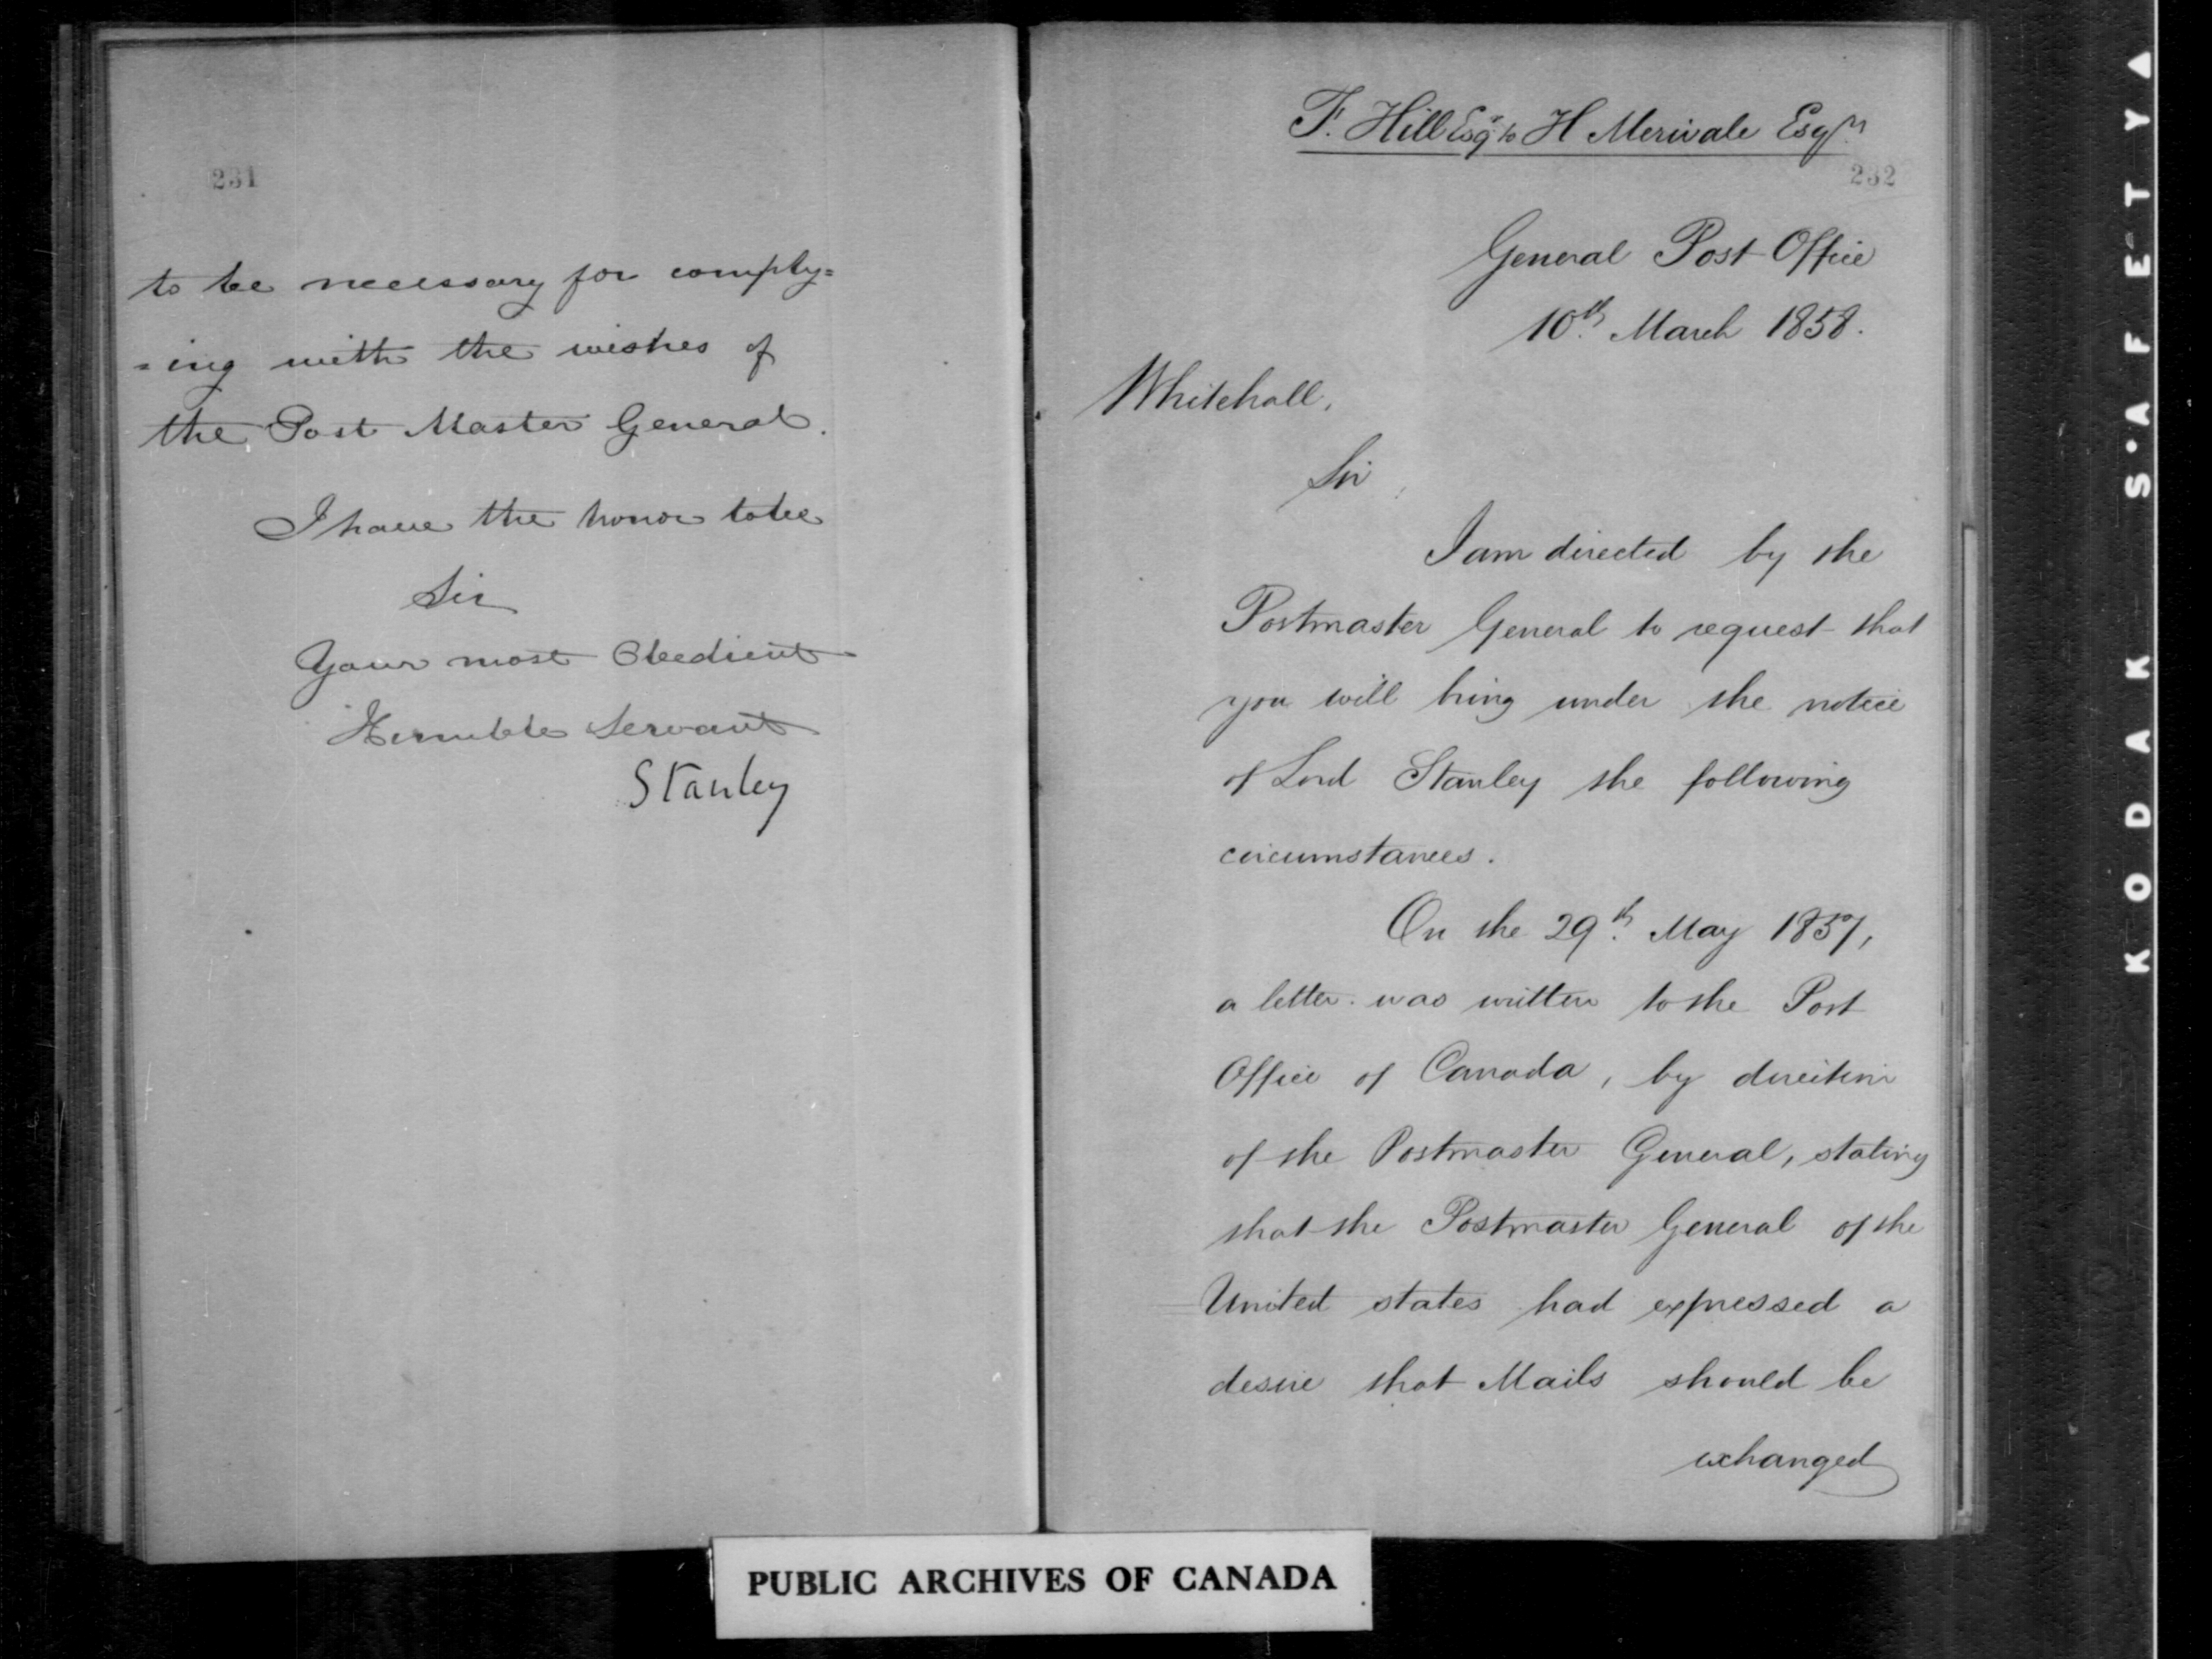 231
to be necessary for comply=
=ing with the wishes of
the Post Master General.
I have the honor to be
Sir
Your most Obedient
Humble Servant
Stanley
F. Hill Esqr to H Merivale Esqre
232
General Post Office
10th March 1858.
Whitehall,
Sir,
I am directed by the
Postmaster General to request that
you will bring under the notice
of Lord Stanley the following
circumstances.
On the 29th May 1857,
a letter was written to the Post
Office of Canada, by direction
of the Postmaster General, stating
that the Postmaster General of the
United states had expressed a
desire that Mails should be
exchanged
PUBLIC ARCHIVES OF CANADA
KODAK S'AFETY▲